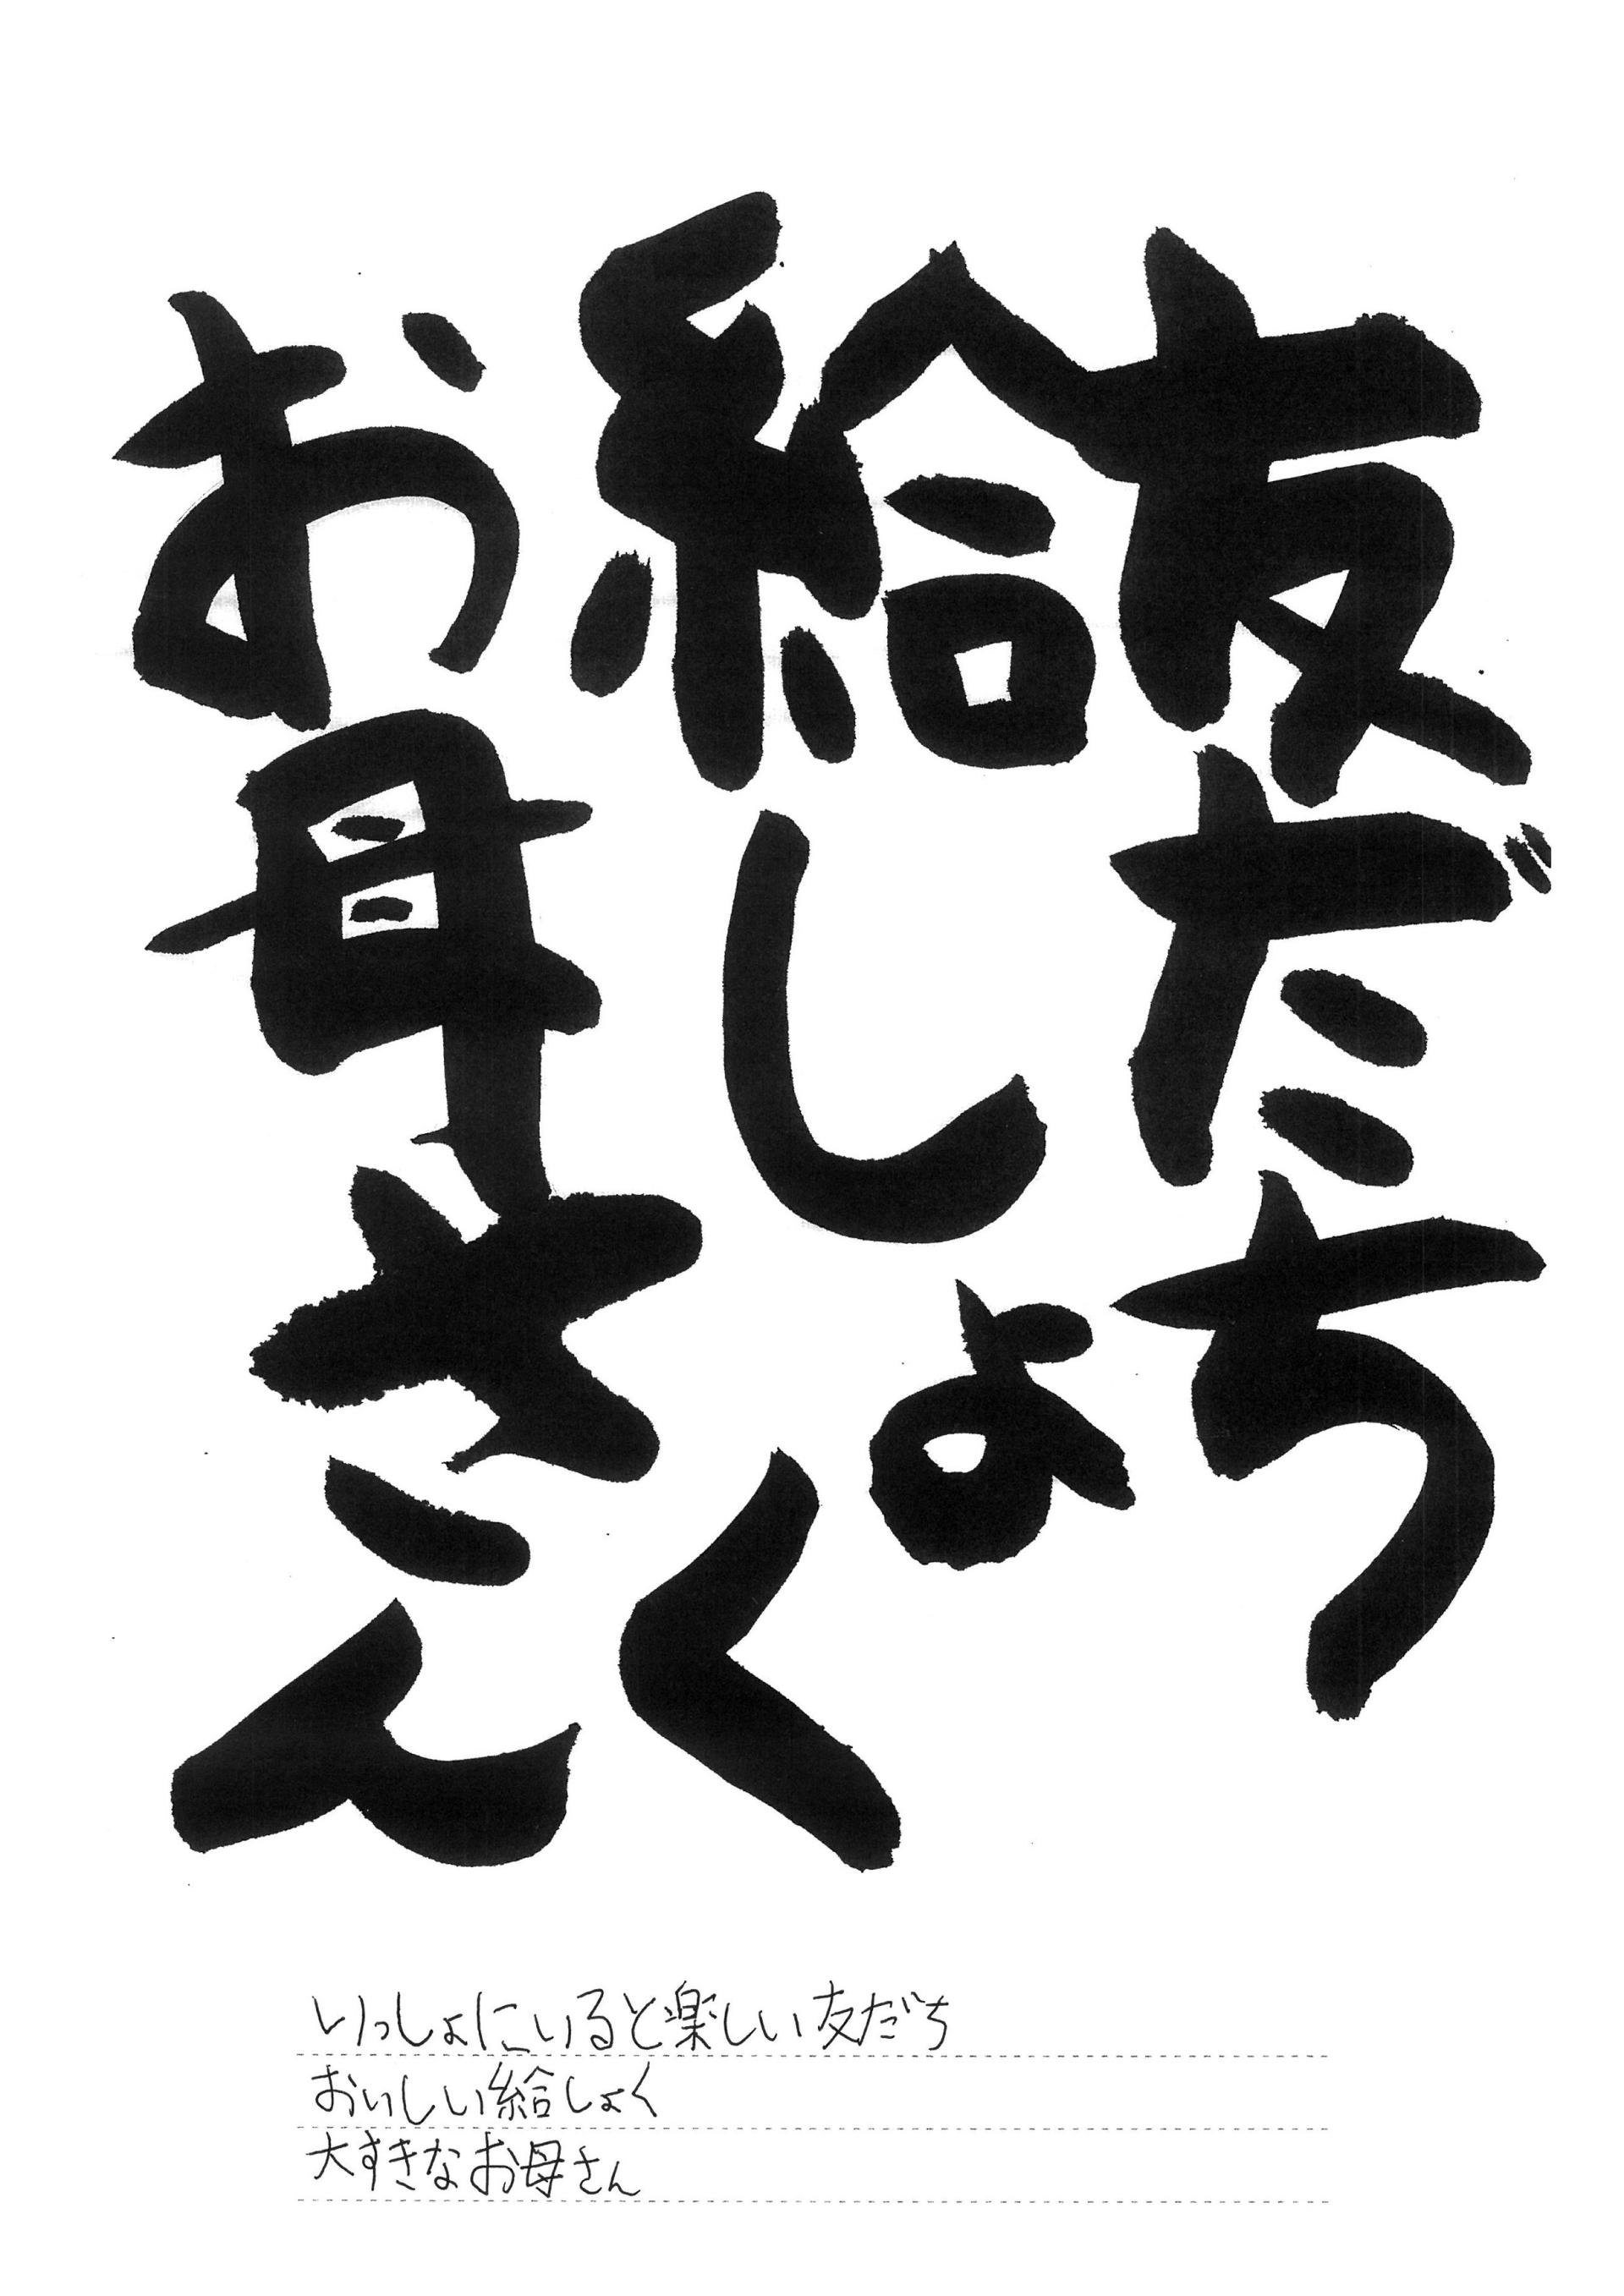 友だち
給しょく
お母さん
いっしょにいると楽しい友だち
おいしい給しょく
大すきなお母さん